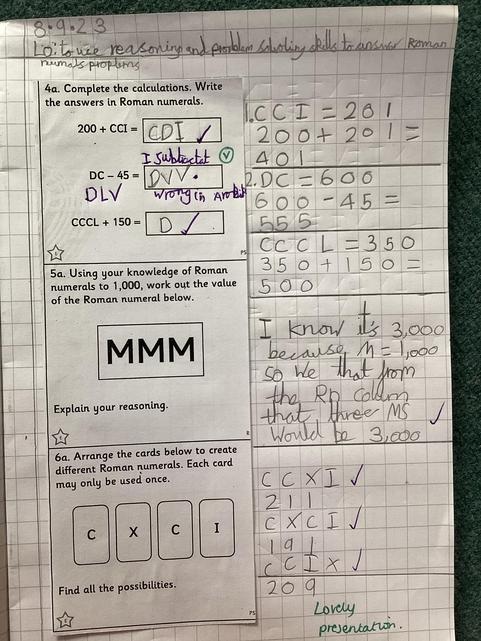 8.9.23
Lo: to use reasoning and problem solveling skills to answer Roman
numals proplems
4a. Complete the calculations. Write
the answers in Roman numerals.
200 + CCI = CDI ✓
I subtractat
DC – 45 = DVV.
DLV
wrong in
CCCL + 150 = D ✓
PS
5a. Using your knowledge of Roman
numerals to 1,000, work out the value
of the Roman numeral below.
MMM
Explain your reasoning.
R
6a. Arrange the cards below to create
different Roman numerals. Each card
may only be used once.
C X C I
Find all the possibilities.
PS
1. CCI = 201
200 + 201 =
401
2. DC = 600
600 - 45 =
555
CCCL = 350
350 + 150 =
500
I know it's 3,000
because M = 1,000
so We that from
the Rn Column
that three MS ✓
Would be 3,000
CCXI ✓
211
CXCI ✓
191
CCIX ✓
209
Lovely
presentation.